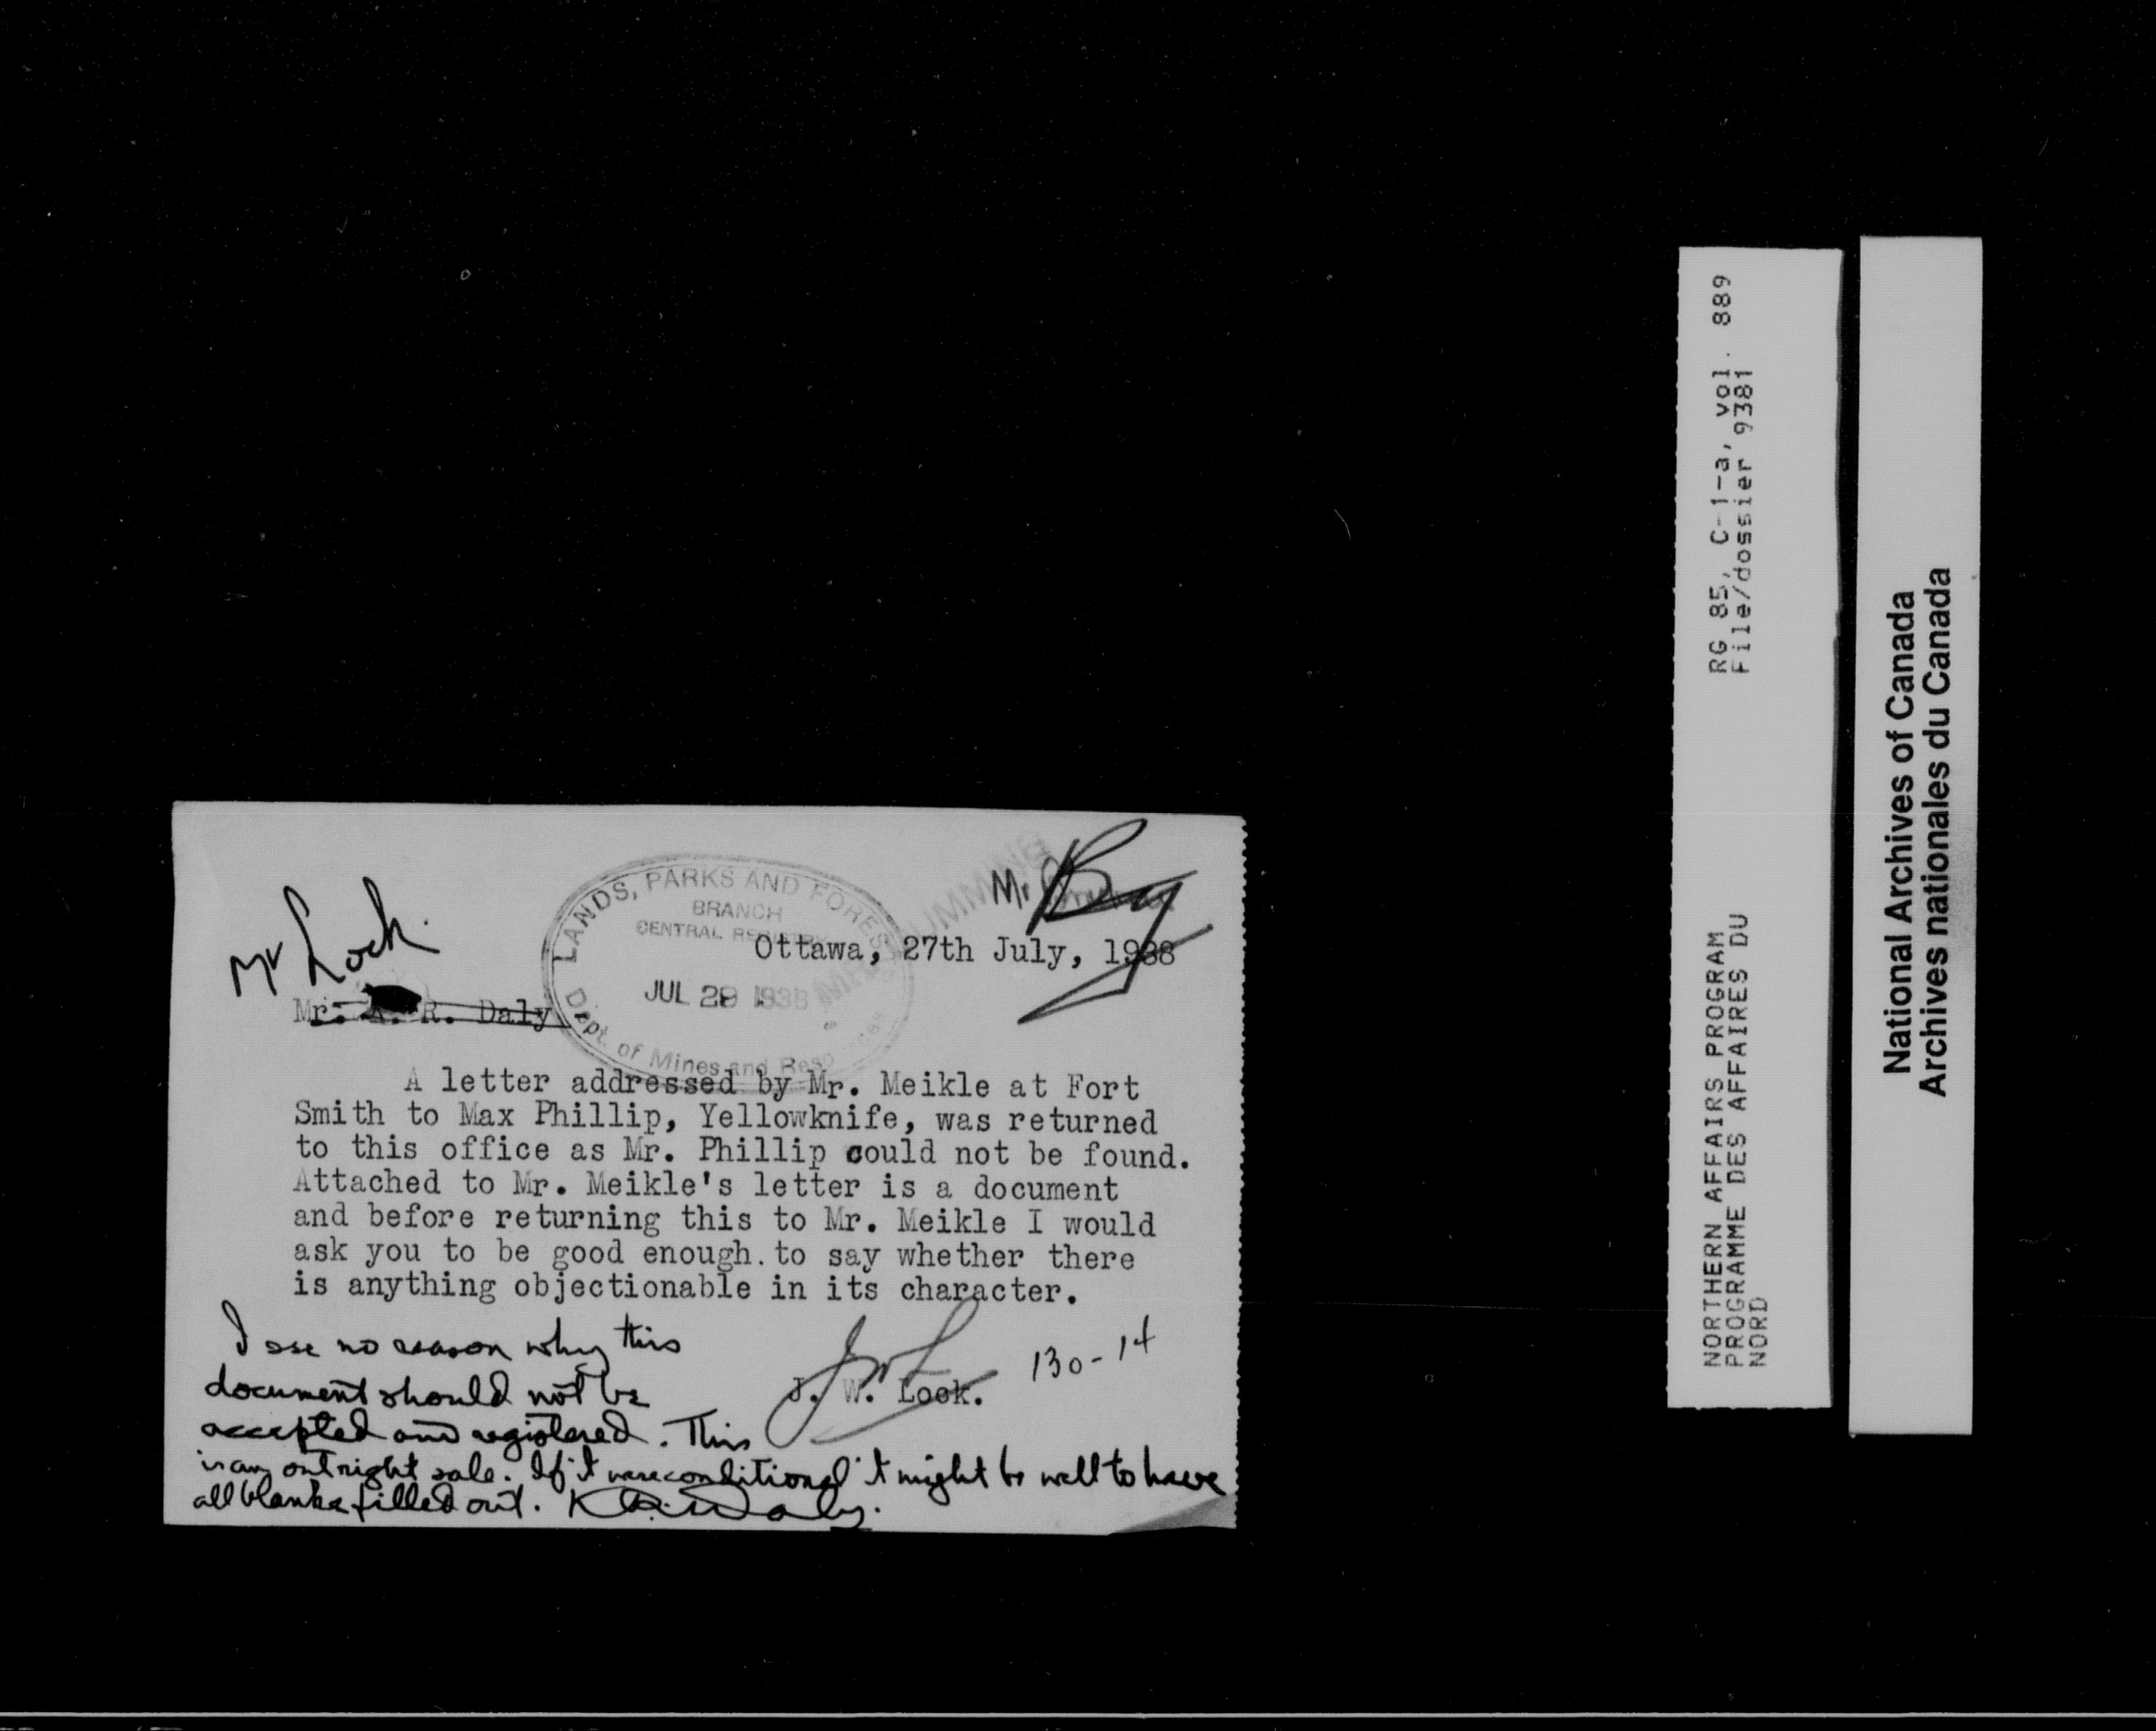 Mr
Ottawa, 27th July, 1938
Mr Lock.
LANDS, PARKS AND FORESTS
BRANCH
CENTRAL REGISTRY
JUL 29 1938
Dept. of Mines and Resources
Mr. R. Daly
A letter addressed by Mr. Meikle at Fort
Smith to Max Phillip, Yellowknife, was returned
to this office as Mr. Phillip could not be found.
Attached to Mr. Meikle's letter is a document
and before returning this to Mr. Meikle I would
ask you to be good enough.to say whether there
is anything objectionable in its character.
J. W. Lock.
130-14
I see no reason why this
document should not be
accepted and registered. This
is an outright sale. If it were conditional it might be well to have
all blanks filled out. K R. Daly.
RG 85, C-1-a, vol. 889
File/dossier 9381
NORTHERN AFFAIRS PROGRAM
PROGRAMME DES AFFAIRES DU
NORD
National Archives of Canada
Archives nationales du Canada